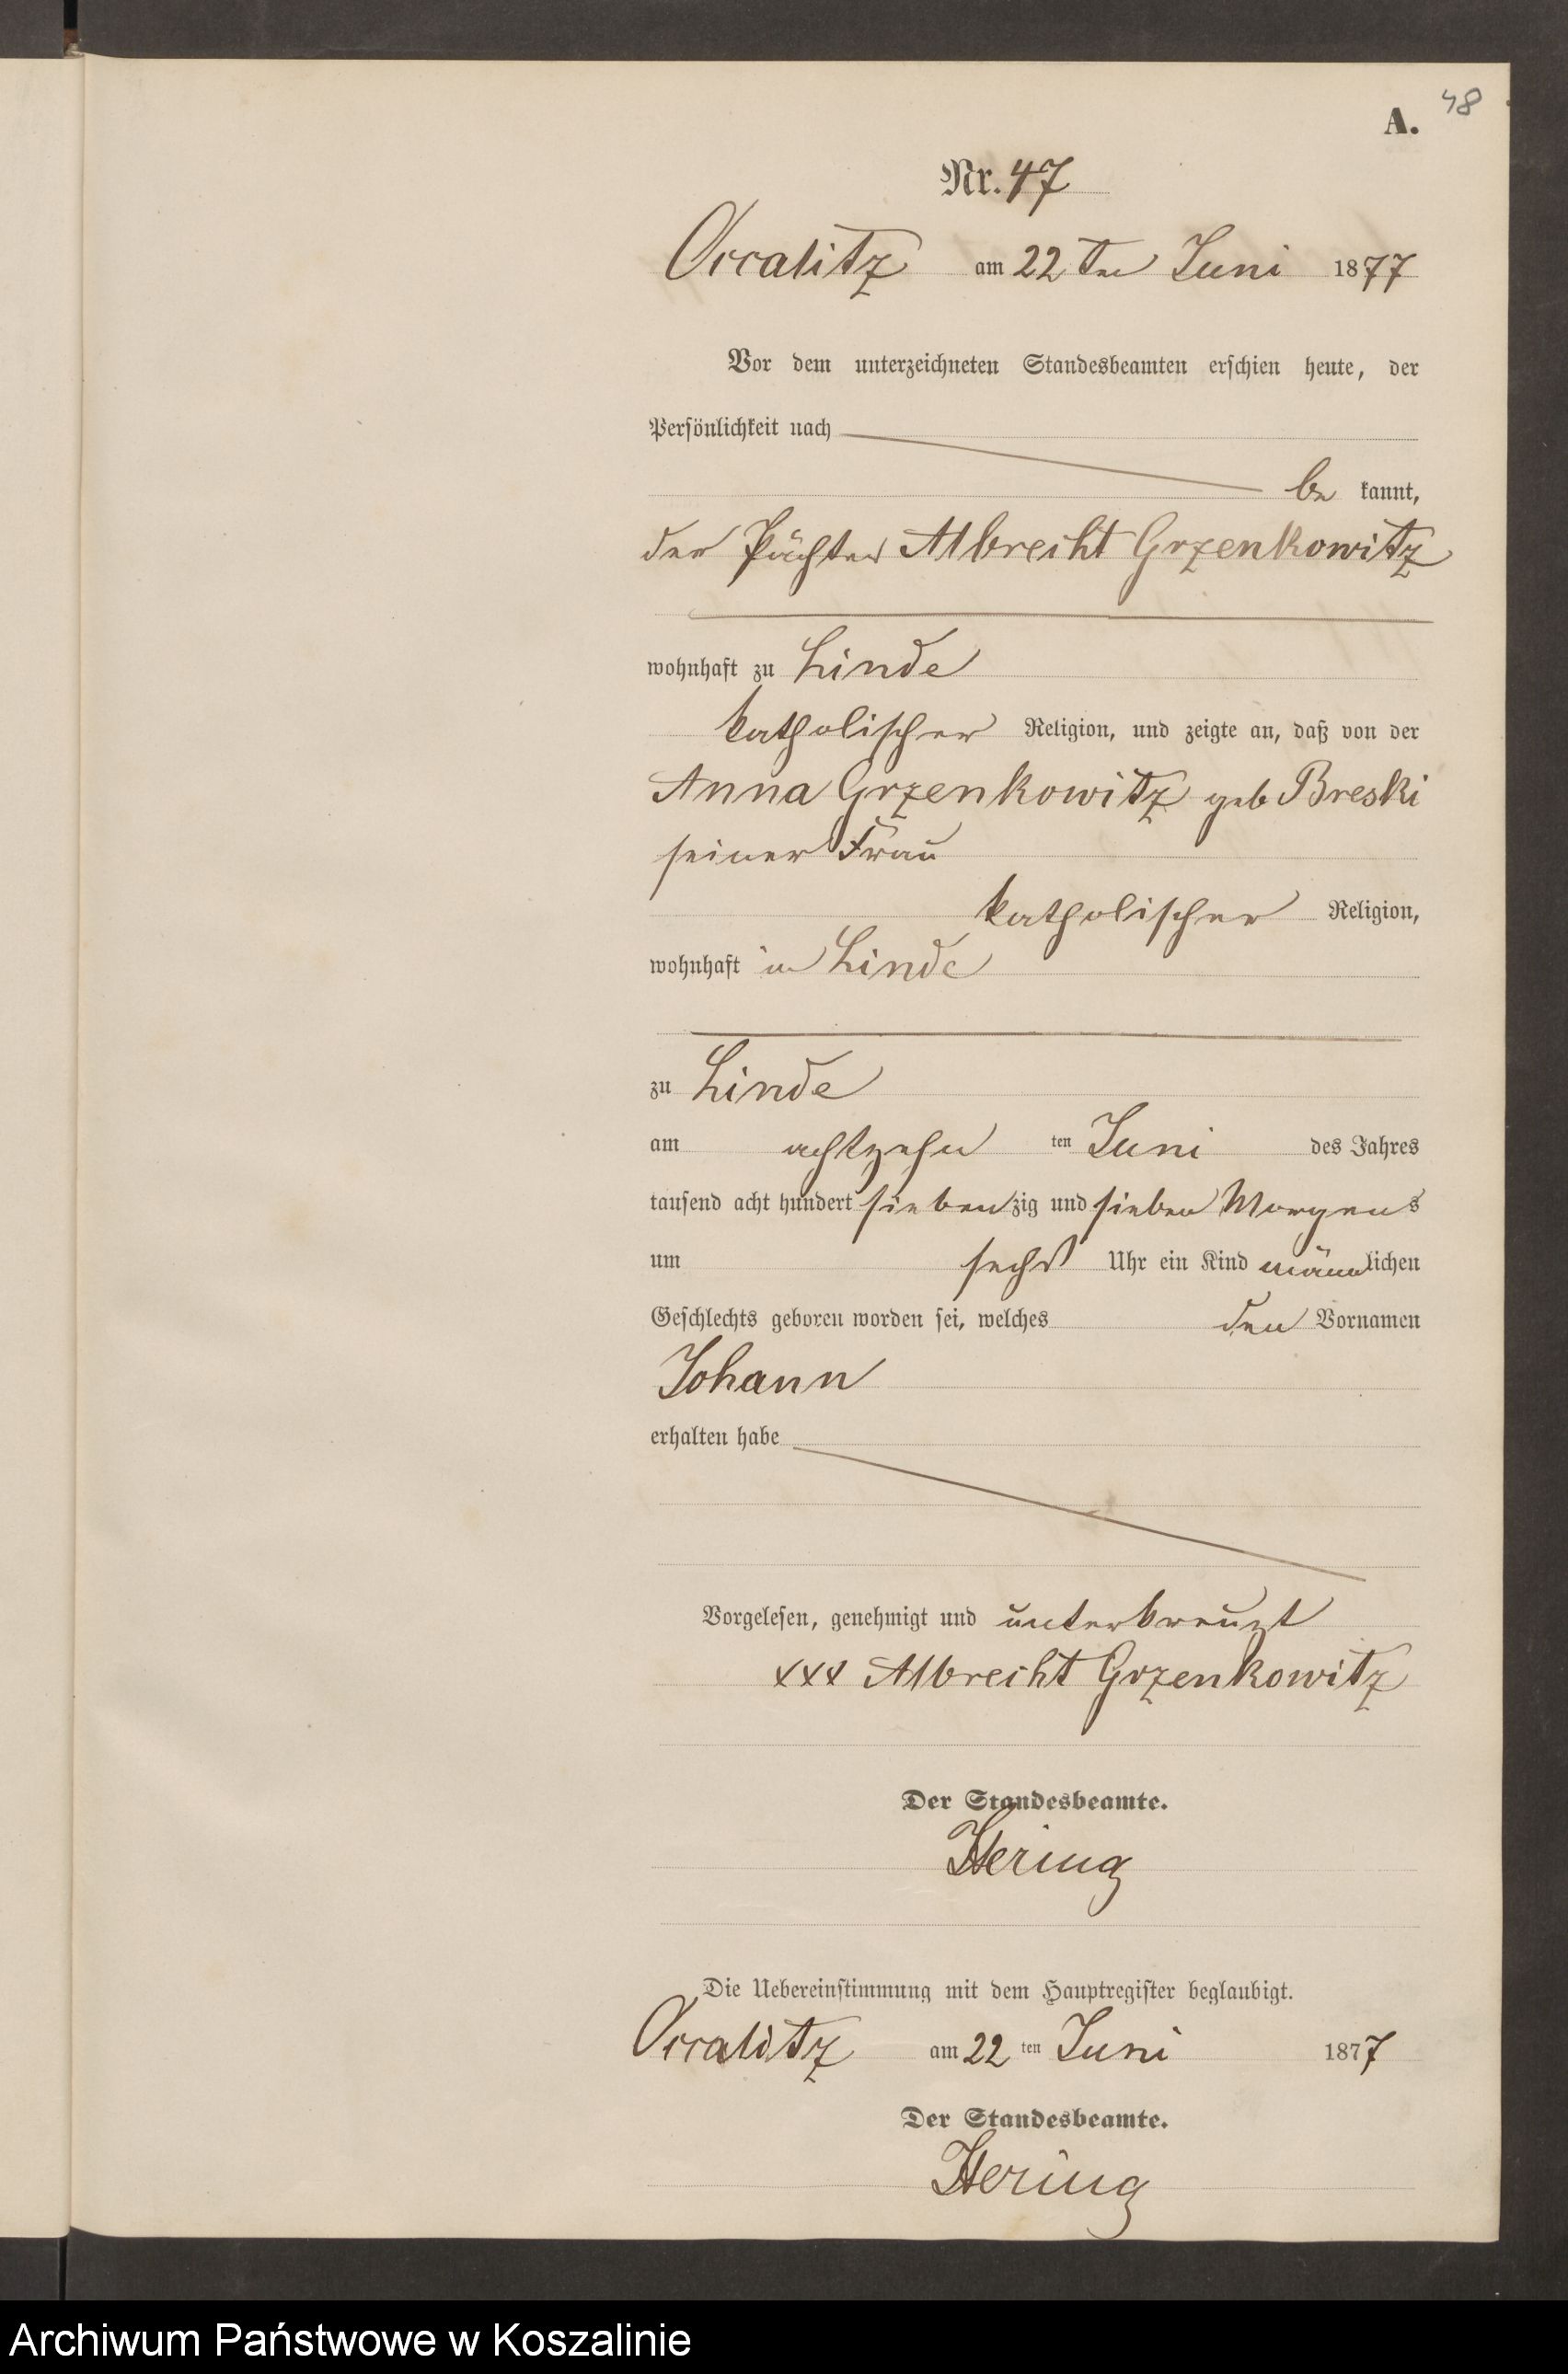 48
A.
Nr. 47
Occalitz am 22 ten Juni 1877
Vor dem unterzeichneten Standesbeamten erschien heute, der
Persönlichkeit nach
be kannt,
der Pächter Albrecht Grzenkowitz
wohnhaft zu Linde
katholischer Religion, und zeigte an, daß von der
Anna Grzenkowitz geb Breski
seiner Frau
katholischer Religion,
wohnhaft in Linde
zu Linde
am achtzehn ten Juni des Jahres
tausend acht hundert siebenzig und sieben Morgens
um sechs Uhr ein Kind männlichen
Geschlechts geboren worden sei, welches den Vornamen
Johann
erhalten habe
Vorgelesen, genehmigt und unterkreuzt
xxx Albrecht Grzenkowitz
Der Standesbeamte.
Hering
Die Uebereinstimmung mit dem Hauptregister beglaubigt.
Occalitz am 22 ten Juni 1877
Der Standesbeamte.
Hering
Archiwum Państwowe w Koszalinie